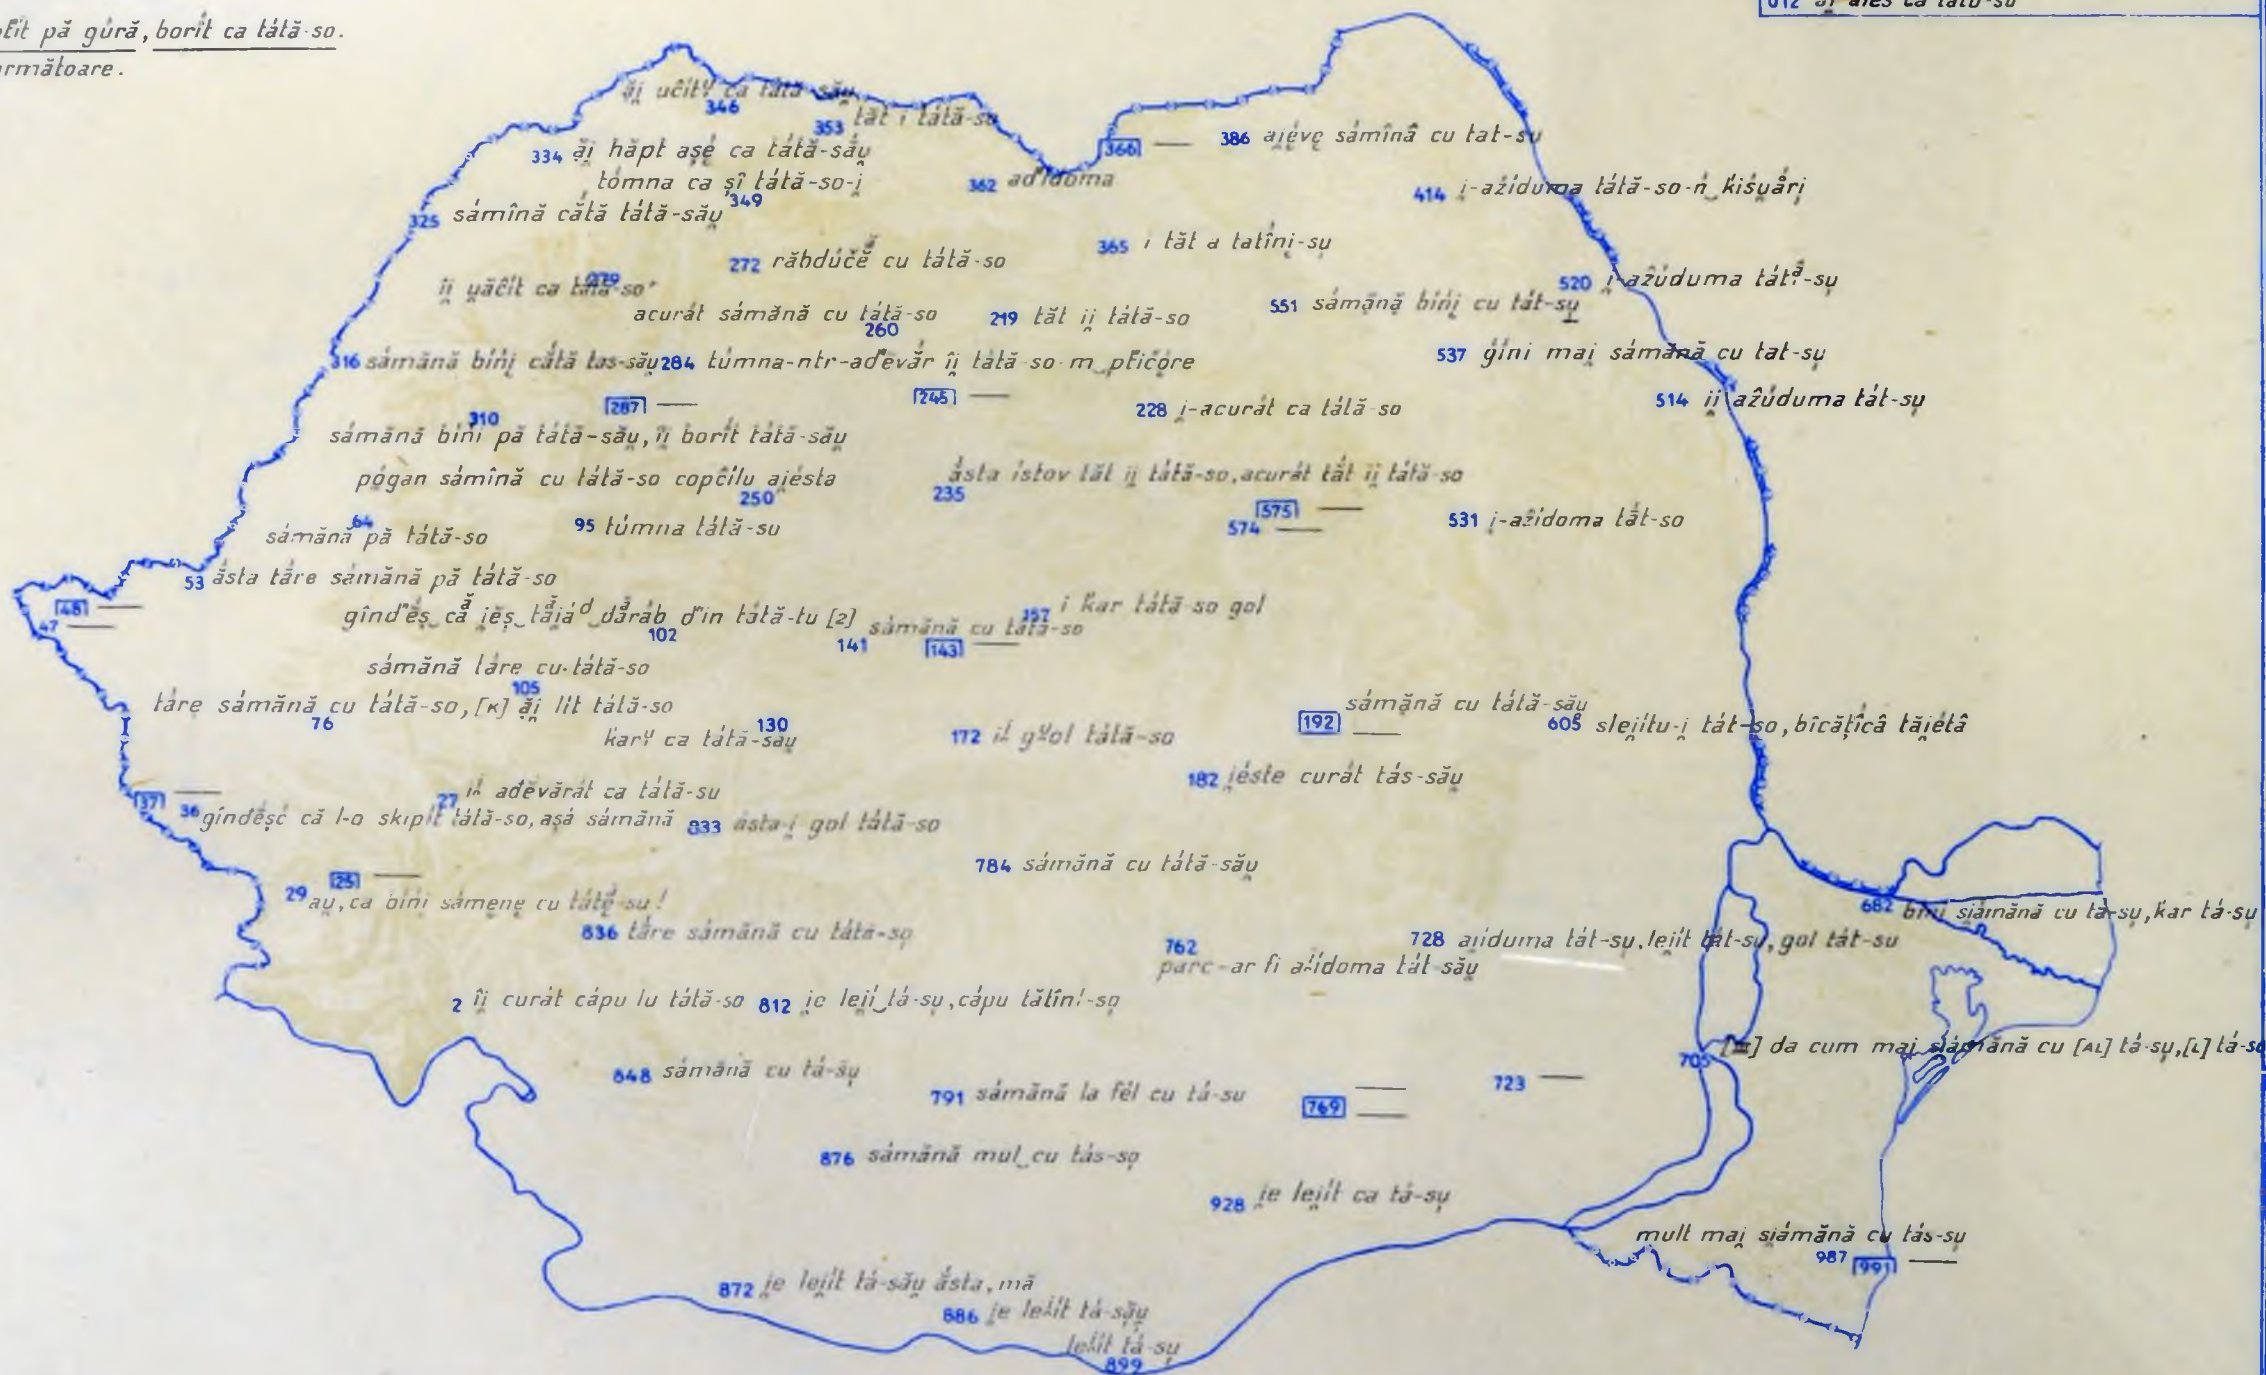 pă gúră, borít ca tátă-so.
012 ăi̯ ales ca tátu-su
ăi̯ ucit ca tátă-său̯
346
353 tăt i tátă-so
366 —
386 ai̯éve sámînă cu tat-su
334 ăi̯ hăpt așé ca tátă-său̯
tómna ca șî tátă-so-i̯
349
362 ad'ídoma
414 i̯-ažíduma tátă-so-n kiśu̯ắri̯
325 sámînă cătă tátă-său̯
365 i tăt a tatîni̯-su̯
272 răbdúcĕ cu tátă-so
279
îi̯ u̯ăĉít ca tátă-so
520 i̯-ažúduma tátă-su̯
551 sámănă bíńi̯ cu tát-su̯
acurát sámănă cu tátă-so
260
219 tăt ii̯ tátă-so
316 sámănă bíńi̯ cătă tas-său̯
284 túmna-ntr-ad'evăr îi̯ tátă-so m ptĭcóre
537 gíni mai̯ sámănă cu tat-su̯
287 —
245 —
228 i̯-acurát ca tátă-so
514 ii̯ ažúduma tát-su̯
310
sámănă bíńi pă tátă-său̯, îi̯ borít tátă-său̯
pógan sámînă cu tátă-so copĉílu ai̯ésta
250
ásta ístov tăt ii̯ tátă-so, acurát tăt ii̯ tátă-so
235
575 —
574 —
531 i̯-ažídoma tăt-so
64
sámănă pă tátă-so
95 túmna tátă-su
53 ásta táre sámănă pă tátă-so
48 —
47 —
gînd'éș că i̯éș tăi̯á d dăráb d'in tátă-tu [2]
102
141 sámănă cu tátă-so
143 —
157 i kar tátă-so gol
sámănă táre cu tátă-so
105
táre sámănă cu tátă-so, [K] ăi̯ lit tátă-so
76
130
kar ca tátă-său̯
172 gol tátă-so
192 —
sámănă cu tátă-său̯
605 sleii̯tu-i̯ tát-so, bîcățîcâ tăi̯étâ
182 i̯éste curát tás-său̯
37 —
27 ad'ĕvărát ca tátă-su
36 gînd'éșć că l-o skipít tátă-so, așá sámănă
833 ásta-i̯ gol tátă-so
784 sámănă cu tátă-său̯
25 —
29 au̯, ca bíńi sámene cu tátĕ-su!
836 táre sámănă cu tátă-so̯
682 bíńi si̯ámănă cu tá-su̯, kar tá-su̯
762
parc-ar fi ažídoma tát-său̯
728 ajíduma tát-su̯, leii̯t tát-su̯, gol tát-su
2 îi̯ curát cápu lu tátă-so
812 i̯e leii̯ tá-su̯, cápu tătîn-so̯
705 da cum mai̯ si̯ámănă cu [AL] tá-su̯, [L] tá-so
848 sámănă cu tá-su̯
791 sámănă la fél cu tá-su
769 —
723 —
876 sámănă mul cu tás-so̯
928 i̯e leii̯t ca tá-su̯
mult mai̯ si̯ámănă cu tás-su̯
987
991 —
872 i̯e leii̯t tá-său̯ ásta, mă
886 i̯e leít tá-său̯
leít tá-su̯
899